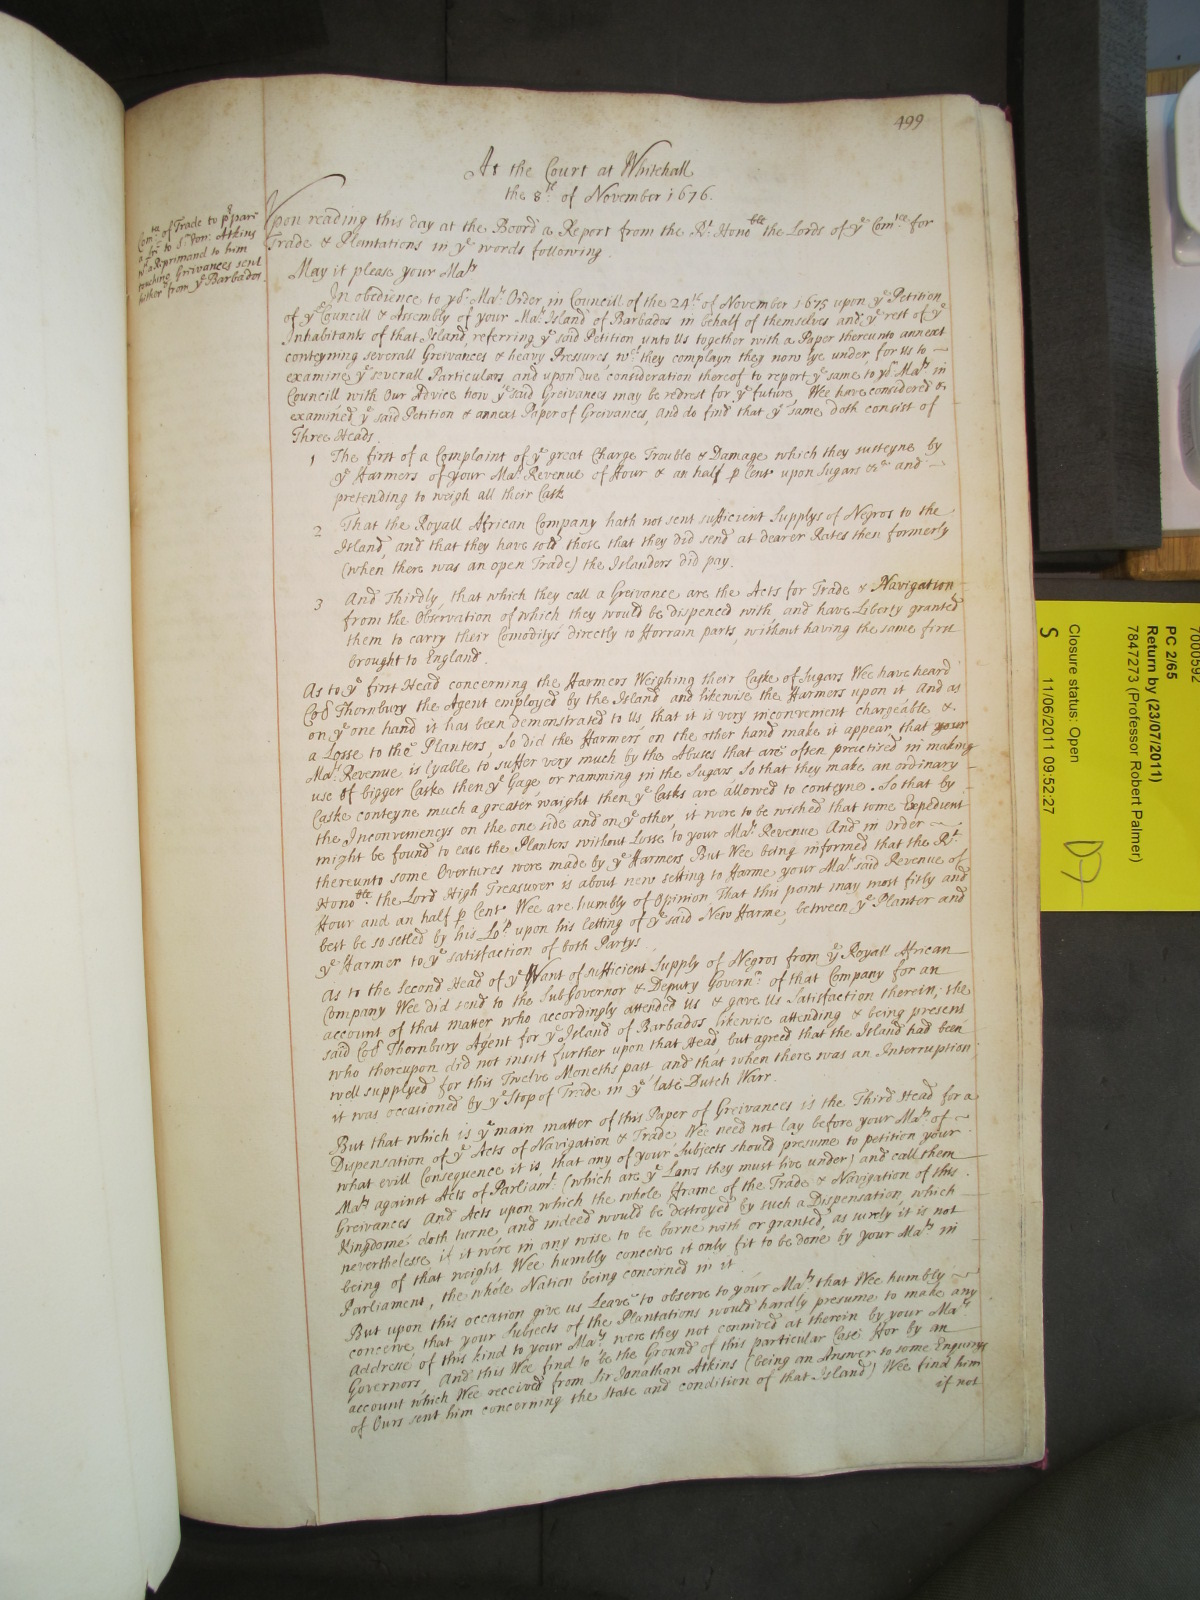 499
At the Court at Whitehall
the 8th of November 1676.
Comtee of Trade to ppare
a Lre to Sr Jon: Atkins
wth a Reprimand to him
touching Greivances sent
hither from ye Barbados.
Upon reading this day at the Board a Report from the Rt Honoble the Lords of ye Comtee for
Trade & Plantations in ye words following.
May it please your Maty
In obedience to yor Mats Order in Councill of the 24th of November 1675 upon ye Petition
of ye Councill & Assembly of your Mats Island of Barbados in behalf of themselves and ye rest of ye
Inhabitants of that Island, referring ye said Petition unto Us together with a Paper thereunto annext
conteyning severall Greivances & heavy Pressures, wch they complayn they now lye under, for Us to
examine ye severall Particulars, and upon due consideration thereof to report ye same to yor Maty in
Councill with Our Advice how ye said Greivances may be redrest for ye future, Wee have considered &
examined ye said Petition & annext Paper of Greivances, and do find that ye same doth consist of
Three Heads.
1 The first of a Complaint of ye great Charge Trouble & Damage which they susteyne by
ye Farmers of your Mats Revenue of Four & an half p Cent upon Sugars &ca and
pretending to weigh all their Cask
2 That the Royall African Company hath not sent sufficient Supplys of Negros to the
Island, and that they have sold those that they did send at dearer Rates then formerly
(when there was an open Trade) the Islanders did pay.
3 And Thirdly, that which they call a Greivance are the Acts for Trade & Navigation
from the Observation of which they would be dispenced with, and have Liberty granted
them to carry their Comoditys directly to Forrain parts, without having the same first
brought to England.
As to ye first Head concerning the Farmers Weighing their Caske of Sugars Wee have heard
Coll Thornbury the Agent employed by the Island, and likewise the Farmers upon it And as
on ye one hand it has been demonstrated to Us that it is very inconvenient chargeable &
a Losse to the Planters, So did the Farmers on the other hand make it appear that your
Mats Revenue is lyable to suffer very much by the Abuses that are often practized in making
use of bigger Caske then ye Gage, or ramming in the Sugars, So that they make an ordinary
Caske conteyne much a greater waight then ye Casks are allowed to conteyne. So that by
the Inconveniencys on the one side and on ye other, it were to be wished that some Expedient
might be found to ease the Planters without Losse to your Mats Revenue And in Order
thereunto some Overtures were made by ye Farmers But Wee being informed that the Rt
Honoble the Lord High Treasurer is about new setting to Farme your Mats said Revenue of
Four and an half p Cent Wee are humbly of Opinion That this point may most fitly and
best be so setled by his Lop upon his letting of ye said New Farme, between ye Planter and
ye Farmer to ye satisfaction of both Partys.
As to the Second Head of ye Want of sufficient Supply of Negros from ye Royall African
Company Wee did send to the SubGovernor & Deputy Governr of that Company for an
account of that matter who accordingly attended Us & gave Us Satisfaction therein, the
said Coll Thornbury Agent for ye Island of Barbados likewise attending & being present
who thereupon did not insist further upon that Head, but agreed that the Island had been
well supplyed for this Twelve Moneths past and that when there was an Interruption
it was occasioned by ye Stop of Trade in ye late Dutch Warr.
But that which is ye main matter of this Paper of Greivances is the Third Head for a
Dispensation of ye Acts of Navigation & Trade Wee need not lay before your Maty of
what evill Consequence it is, that any of your Subjects should presume to petition your
Maty against Acts of Parliamt (which are ye Laws they must live under) and call them
Greivances And Acts upon which the whole Frame of the Trade & Navigation of this
Kingdome doth turne, and indeed would be destroyed by such a Dispensation, which
nevertheless if it were in any wise to be borne with or granted, as surely it is not
being of that weight Wee humbly conceive it only fit to be done by your Maty in
Parliament, the whole Nation being concerned in it.
But upon this occasion give us Leave to observe to your Maty that Wee humbly
conceive, that your Subjects of the Plantations would hardly presume to make any
Addresse of this kind to your Maty were they not connived at therein by your Mats
Governors, And this Wee find to be the Ground of this particular Case: For by an
account which Wee received from Sir Jonathan Atkins (being an Answer to some Enquirys
of Ours sent him concerning the State and condition of that Island) Wee find him
if not
7000592
PC 2/65
Return by (23/07/2011)
7847273 (Professor Robert Palmer)
Closure status: Open
S 11/06/2011 09:52:27